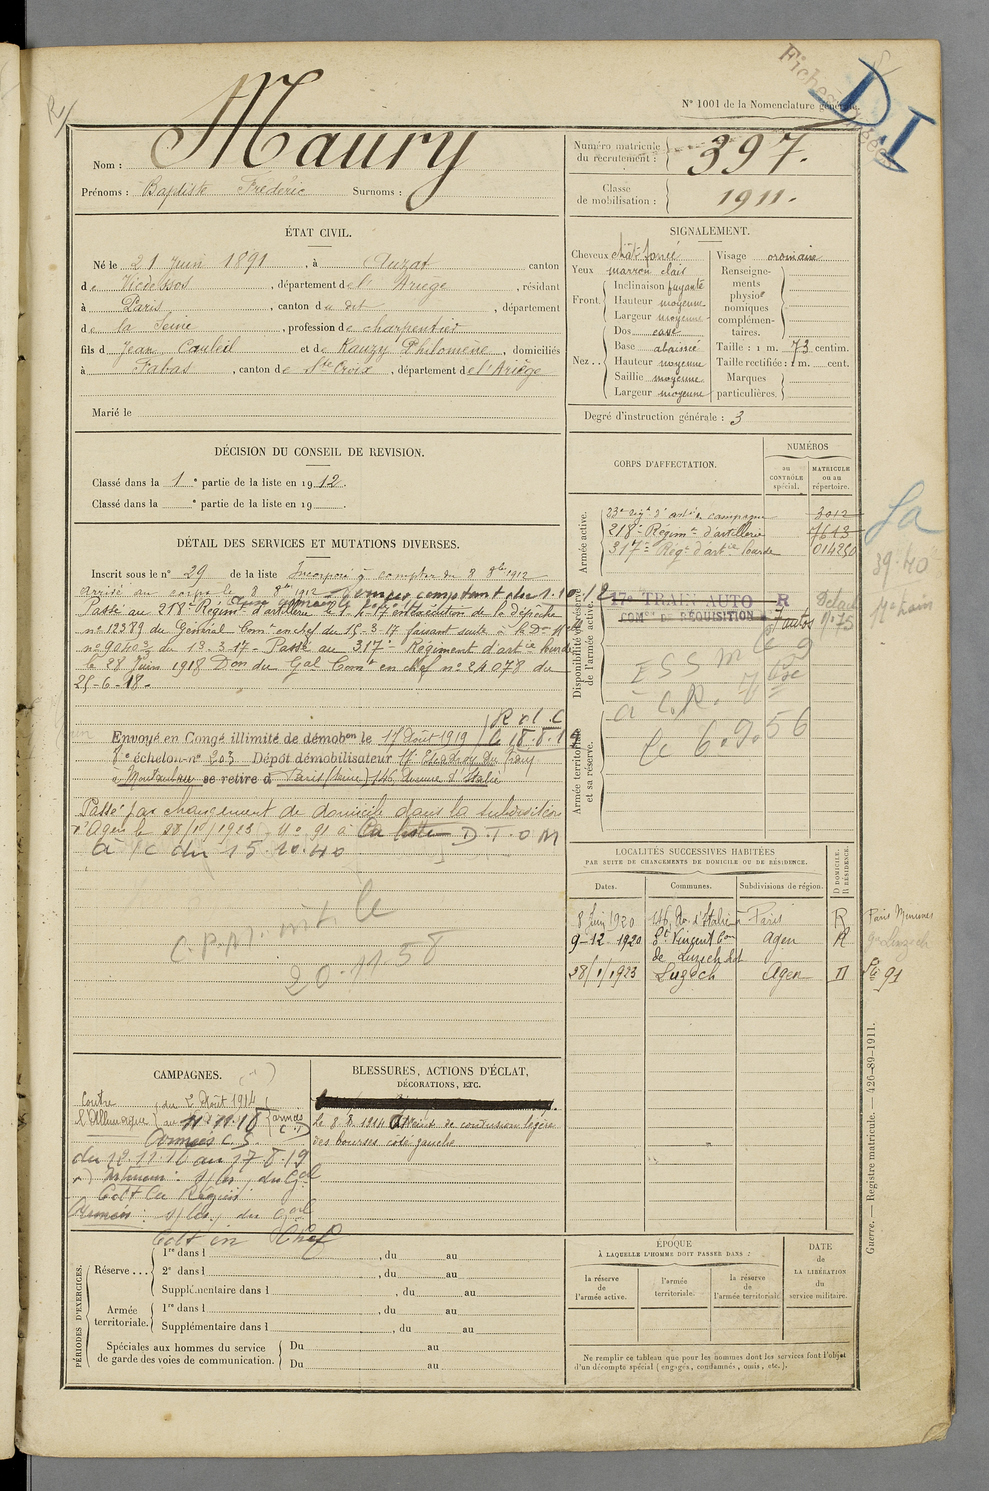 N° 1001 de la Nomenclature générale.
DI
Nom : Maury
Prénoms : Baptiste Frédéric Surnoms :
Numéro matricule du recrutement : 397.
Classe de mobilisation : 1911.
ÉTAT CIVIL.
Né le 21 juin 1891, à Auzat canton
de Vicdessos, département de l'Ariège, résidant
à Paris, canton du dit, département
de la Seine, profession de charpentier
fils de Jean Cauleil et de Rauzy Philomène, domiciliés
à Fabas, canton de Ste Croix, département de l'Ariège
Marié le
DÉCISION DU CONSEIL DE REVISION.
Classé dans la 1e partie de la liste en 1912.
Classé dans la e partie de la liste en 19
DÉTAIL DES SERVICES ET MUTATIONS DIVERSES.
Inscrit sous le n° 29 de la liste Incorporé à compter du 8 8bre 1912
Arrivé au corps le 8 8bre 1912 comptant du 1.10.12
Passé au 218e Régiment d'artillerie le 1.4.17 en exécution de la dépêche
n° 12389 du Général Comt en chef du 15-3-17 faisant suite à la Don Mlle
n° 9040 du 13-3-17- Passé au 317e Régiment d'artie lourde
le 28 Juin 1918 Don du Gal Comt en chef n° 24078 du
25-6-18-
Envoyé en Congé illimité de démobon le 17 Août 1919
8e échelon n° 203 Dépôt démobilisateur 17 Escadron du Train
à Montauban se retire à Paris (Seine) 146 Avenue d'Italie
R d l C
le 18.8.19
Passé par changement de domicile dans la subdivision
d'Agen le 28/1/1923 - n° 91 à la liste D.T.O M
à /c du 15.10.40
le
20.11.58
CAMPAGNES.
Contre l'Allemagne
du 2 Août 1914
au 11.11.18
armées
Armées C. S.
du 12.11.18 au 17.8.19
BLESSURES, ACTIONS D'ÉCLAT,
DÉCORATIONS, ETC.
le 8.8.1914 Atteint de contusion légère
des bourses côté gauche
PÉRIODES D'EXERCICES.
Réserve...
1re dans l , du au
2e dans l , du au
Supplémentaire dans l , du au
Armée territoriale.
1re dans l , du au
Supplémentaire dans l , du au
Spéciales aux hommes du service de garde des voies de communication.
Du au
Du au
SIGNALEMENT.
Cheveux chât foncé
Yeux marron clair
Front.
Inclinaison fuyante
Hauteur moyenne
Largeur moyenne
Nez..
Dos cave
Base abaissée
Hauteur moyenne
Saillie moyenne
Largeur moyenne
Visage
Renseignements physionomiques complémentaires.
Taille : 1 m. 73 centim.
Taille rectifiée : 1 m. cent.
Marques particulières.
Degré d'instruction générale : 3
CORPS D'AFFECTATION.
NUMÉROS
au CONTRÔLE spécial.
MATRICULE ou au répertoire.
Armée active.
23e régt d'artie campagne 3012
218e Régimt d'artillerie 7613
317e Régt d'artie lourde 014250
Disponibilité et réserve de l'armée active.
17e TRAIN AUTO R
COMon DE RÉQUISITION
39-40
ESS M
à C.R.
le 6.9.56
Armée territoriale et sa réserve.
LOCALITÉS SUCCESSIVES HABITÉES
PAR SUITE DE CHANGEMENTS DE DOMICILE OU DE RÉSIDENCE.
Dates. Communes. Subdivisions de région. D DOMICILE. R RÉSIDENCE.
8 Juin 1920 146, Av. d'Italie Paris R
9-12-1920 St Vincent Con de Luzech Lot Agen R
28/1/1923 Luzech Agen D
91
ÉPOQUE
À LAQUELLE L'HOMME DOIT PASSER DANS :
la réserve de l'armée active.
l'armée territoriale.
la réserve de l'armée territoriale
DATE de LA LIBÉRATION du service militaire.
Ne remplir ce tableau que pour les hommes dont les services font l'objet
d'un décompte spécial (engagés, condamnés, omis, etc.).
Guerre. — Registre matricule. — 426-89-1911.